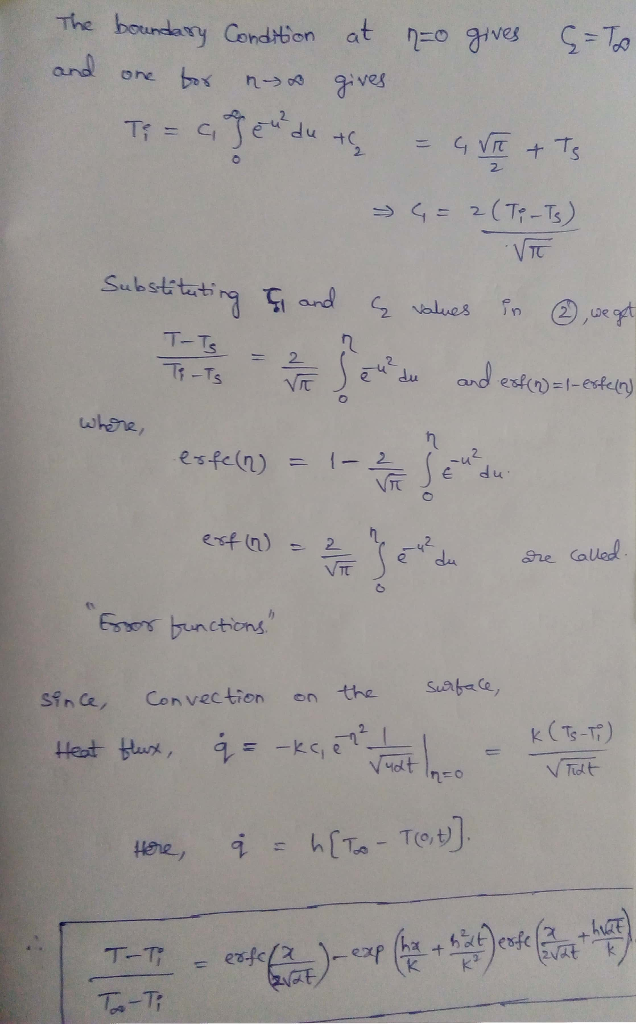 The boundary Condition at η=0 gives C₂ = T∞
and one for η→∞ gives
Ti = C₁ ∫₀^∞ e^-u² du + C₂ = C₁ √π/2 + Ts
⇒ C₁ = 2(Ti-Ts)/√π
Substituting C₁ and C₂ values in ②, we get
T-Ts/Ti-Ts = 2/√π ∫₀^η e^-u² du and erf(η)=1-erfc(η)
where,
erfc(η) = 1 - 2/√π ∫₀^η e^-u² du.
erf(η) = 2/√π ∫₀^η e^-u² du are called.
"Error functions"
Since, Convection on the surface,
Heat flux, q̇ = -kC₁ e^-η² 1/√4αt |η=0 = k(Ts-Ti)/√παt
Here, q̇ = h[T∞ - T(0,t)].
∴ T-Ti/T∞-Ti = erfc(x/2√αt) - exp(hx/k + h²αt/k²) erfc(x/2√αt + h√αt/k)